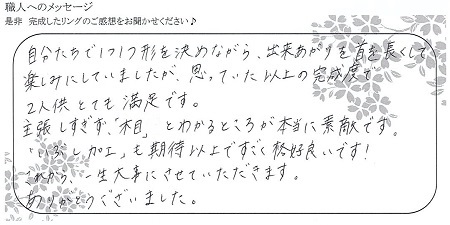 職人へのメッセージ
是非 完成したリングのご感想をお聞かせください♪
自分たちで1つ1つ形を決めながら、出来あがりを首を長くして
楽しみにしていましたが、思っていた以上の完成度で
2人供とても満足です。
主張しすぎず、「木目」とわかるところが本当に素敵です。
「いぶし加工」も期待以上ですごく格好良いです!
これから、一生大事にさせていただきます。
ありがとうございました。